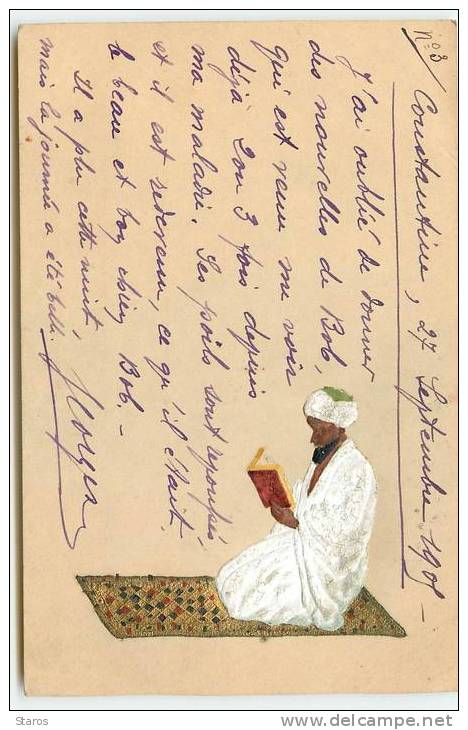 N° 3
Constantine, 27 Septembre 1905 -
J'ai oublié de donner
des nouvelles de Bob,
qui est venu me voir
déjà 2 ou 3 fois depuis
ma maladie. Ses poils sont repoussés,
et il est redevenu, ce qu'il était.
le beau et bon chien Bob. -
Il a plu cette nuit,
mais la journée a été belle.
Staros
delcampe.net